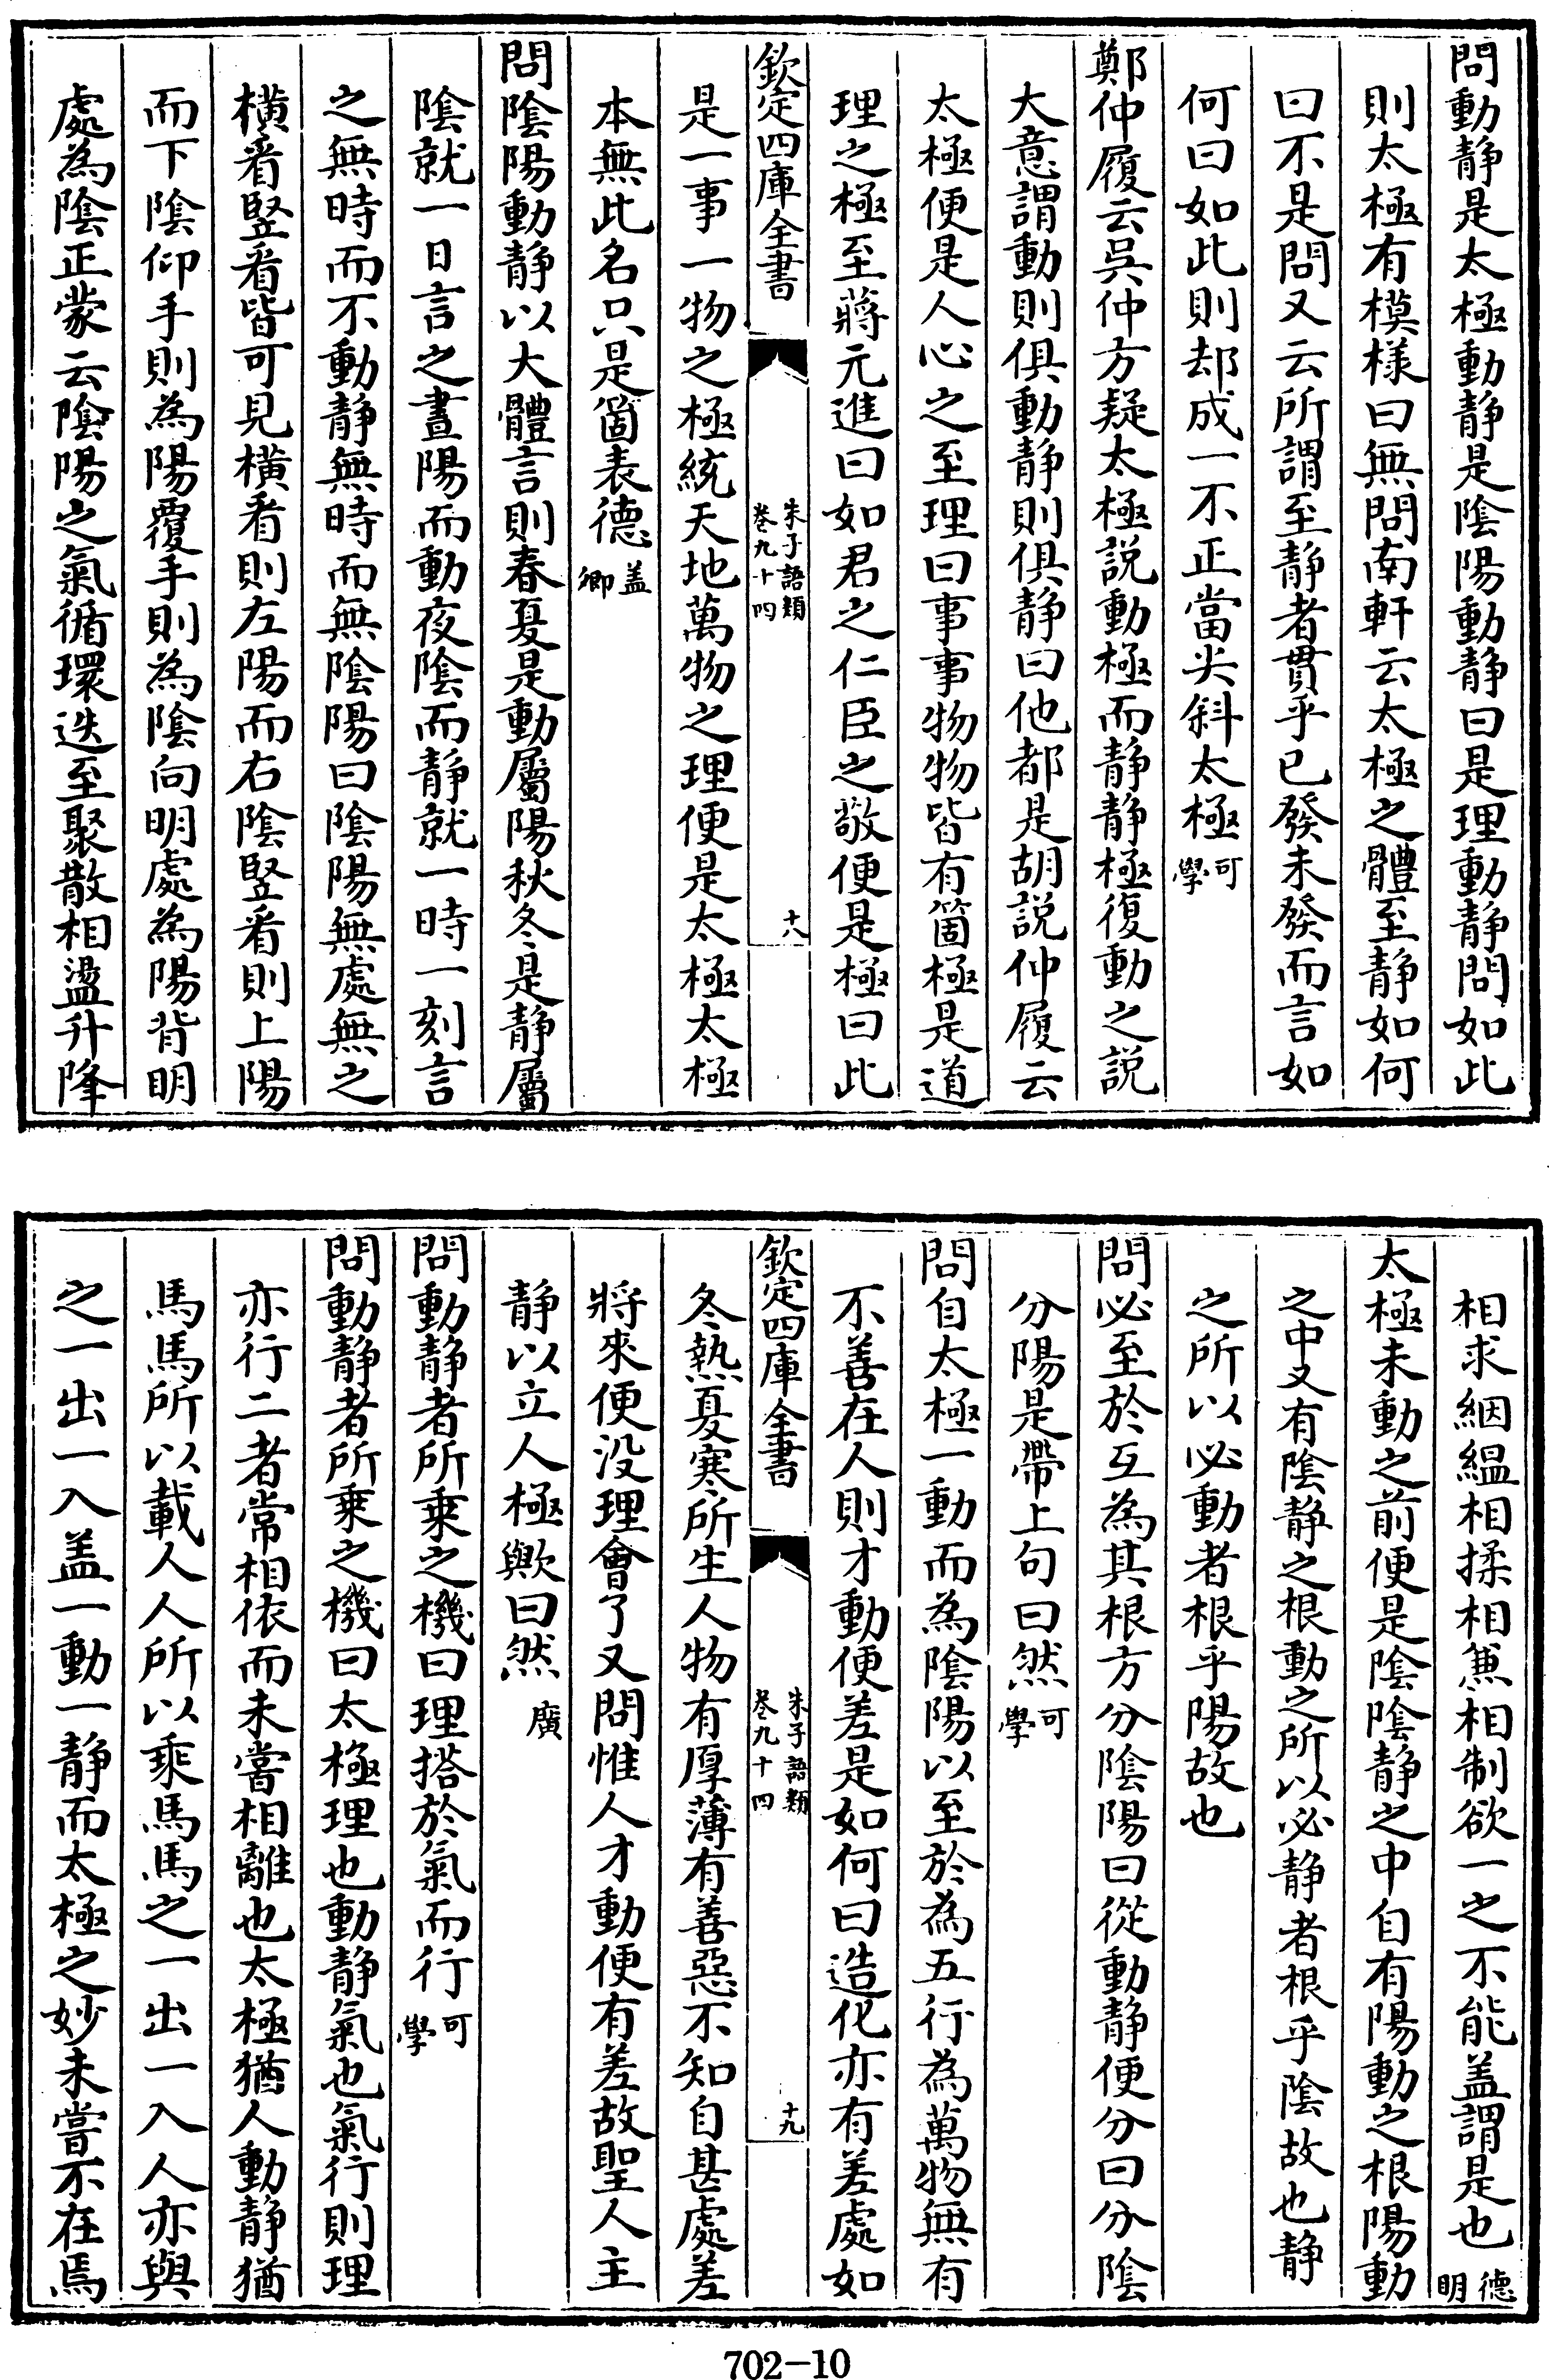 問動静是太極動静是陰陽動静曰是理動静問如此
則太極有模樣曰無問南軒云太極之體至静如何
曰不是問又云所謂至静者貫乎已發未發而言如
何曰如此則却成一不正當尖斜太極可學
鄭仲履云吳仲方疑太極説動極而静静極復動之説
大意謂動則俱動静則俱静曰他都是胡説仲履云
太極便是人心之至理曰事事物物皆有箇極是道
理之極至蔣元進曰如君之仁臣之敬便是極曰此
欽定四庫全書
朱子語類
卷九十四
十八
是一事一物之極統天地萬物之理便是太極太極
本無此名只是箇表德盖卿
問陰陽動静以大體言則春夏是動屬陽秋冬是静屬
陰就一日言之晝陽而動夜陰而静就一時一刻言
之無時而不動静無時而無陰陽曰陰陽無處無之
橫看竪看皆可見橫看則左陽而右陰竪看則上陽
而下陰仰手則為陽覆手則為陰向明處為陽背明
處為陰正蒙云陰陽之氣循環迭至聚散相盪升降
相求絪緼相揉相兼相制欲一之不能盖謂是也德明
太極未動之前便是陰陰静之中自有陽動之根陽動
之中又有陰静之根動之所以必静者根乎陰故也静
之所以必動者根乎陽故也
問必至於互為其根方分陰陽曰從動静便分曰分陰
分陽是帶上句曰然可學
問自太極一動而為陰陽以至於為五行為萬物無有
不善在人則才動便差是如何曰造化亦有差處如
欽定四庫全書
朱子語類
卷九十四
十九
冬熱夏寒所生人物有厚薄有善惡不知自甚處差
將來便没理會了又問惟人才動便有差故聖人主
静以立人極歟曰然廣
問動静者所乘之機曰理搭於氣而行可學
問動静者所乘之機曰太極理也動静氣也氣行則理
亦行二者常相依而未嘗相離也太極猶人動静猶
馬馬所以載人人所以乘馬馬之一出一入人亦與
之一出一入盖一動一静而太極之妙未嘗不在焉
702-10